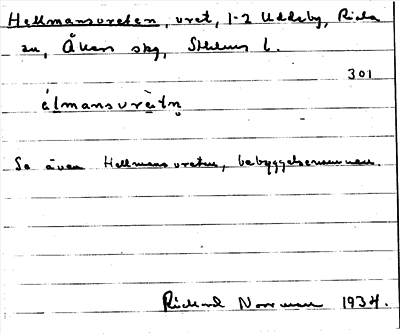 Hellmansvreten, vret, 1-2 Uddeby, Rick
au, Åkers skg, Sthlms l.
301
elmansvrètn̥
Se även Hellmansvreten, bebyggelsenamnen.
Rickard Norrman 1934.